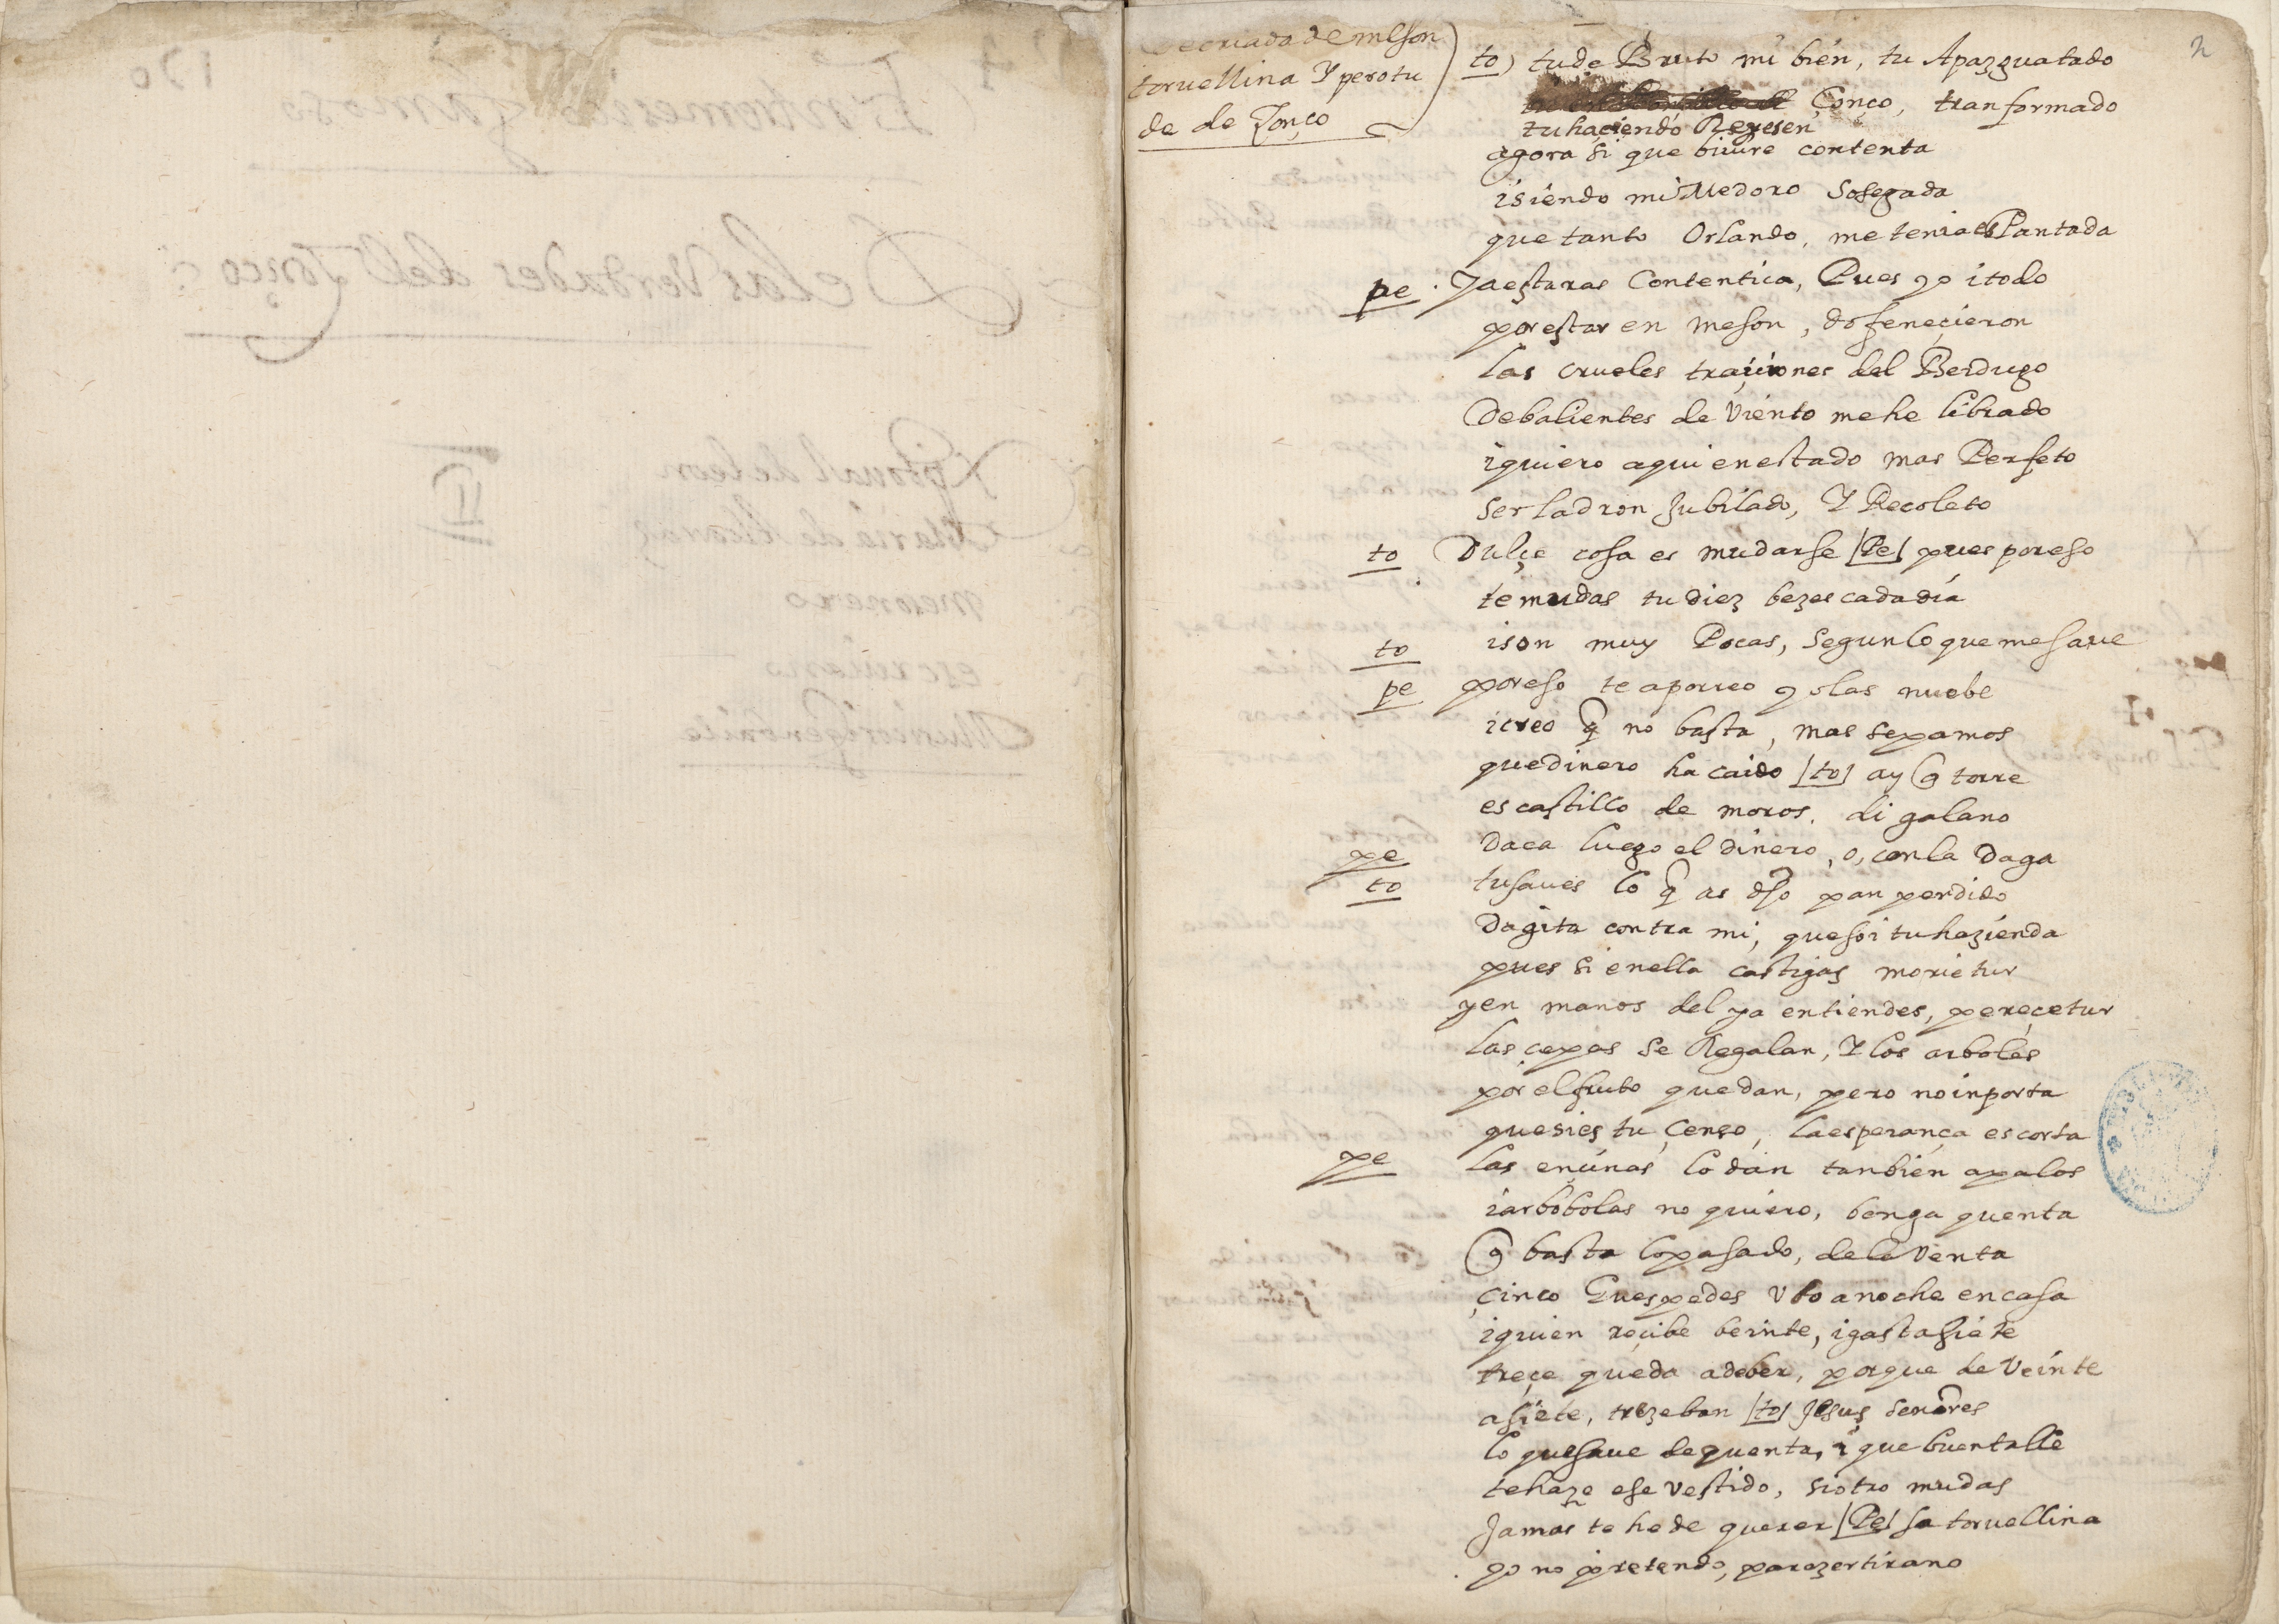 de criada de meson
torvellina Y perotu
de de Tonço
2
to) tu de Bruto mi bien, tu Apazguatado
Tonço, tranformado
tu haciendo Represen
agora si que bivire contenta
isiendo mi Medoro Sosegada
que tanto Orlando, me tenia esPantada
pe . Jaestaras Contentica, Pues yo i todo
por estar en meson, do feneçieron
las crueles traiçiones del Berdugo
De balientes de Viento me he librado
iquiero aqui en estado mas Perfeto
Ser ladron Jubilado, Y Recoleto
to Dulçe cosa es mudarse |Pe| pues por eso
te mudas tu diez bezes cada dia
to ison muy Pocas, Segun lo que me save
pe por eso te aporreo yo las nuebe
icreo q̃ no basta, mas sepamos
que dinero ha caido |to| ay q̃ torre
es castillo de moros. di galano
pe Daca luego el dinero, o, con la Daga
to tu saves lo q̃ as dho pan perdido
Dagita contra mi, que soi tu hazienda
pues si en ella castigas morietur
yen manos del ya entiendes, pereçetur
las çepas se Regalan, Y los arboles
por el fruto quedan, pero no inporta
que si es tu Çenso, la esperança es corta
pe las enzinas lo dan tanbien a palos
iarbobolas no quiero, benga quenta
q̃ basta lo pasado, de la Venta
çinco Guespedes Vbo anoche en casa
iquien reçibe beinte, igasta siete
treçe queda a deber, porque de Veinte
a siete, treze ban |to| Jesus señores
lo que save de quenta, i que buen talle
te haze ese Vestido, si otro mudas
Jamas te he de querer |Pe| sa torvellina
yo no pretendo, parezer tirano